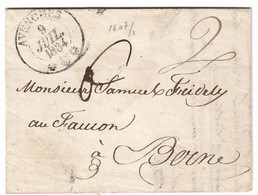 AVENCHES
9
JUIL.
1834
6
2
Monsieur Samuel Fridely
au Faucon
à
Berne